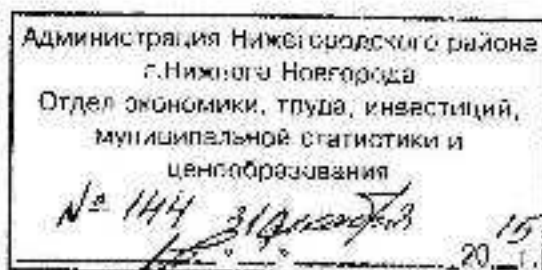 Администрация Нижегородского района
г.Нижнего Новгорода
Отдел экономики, труда, инвестиций,
муниципальной статистики и
ценообразования
№ 144 31
20 15 г.